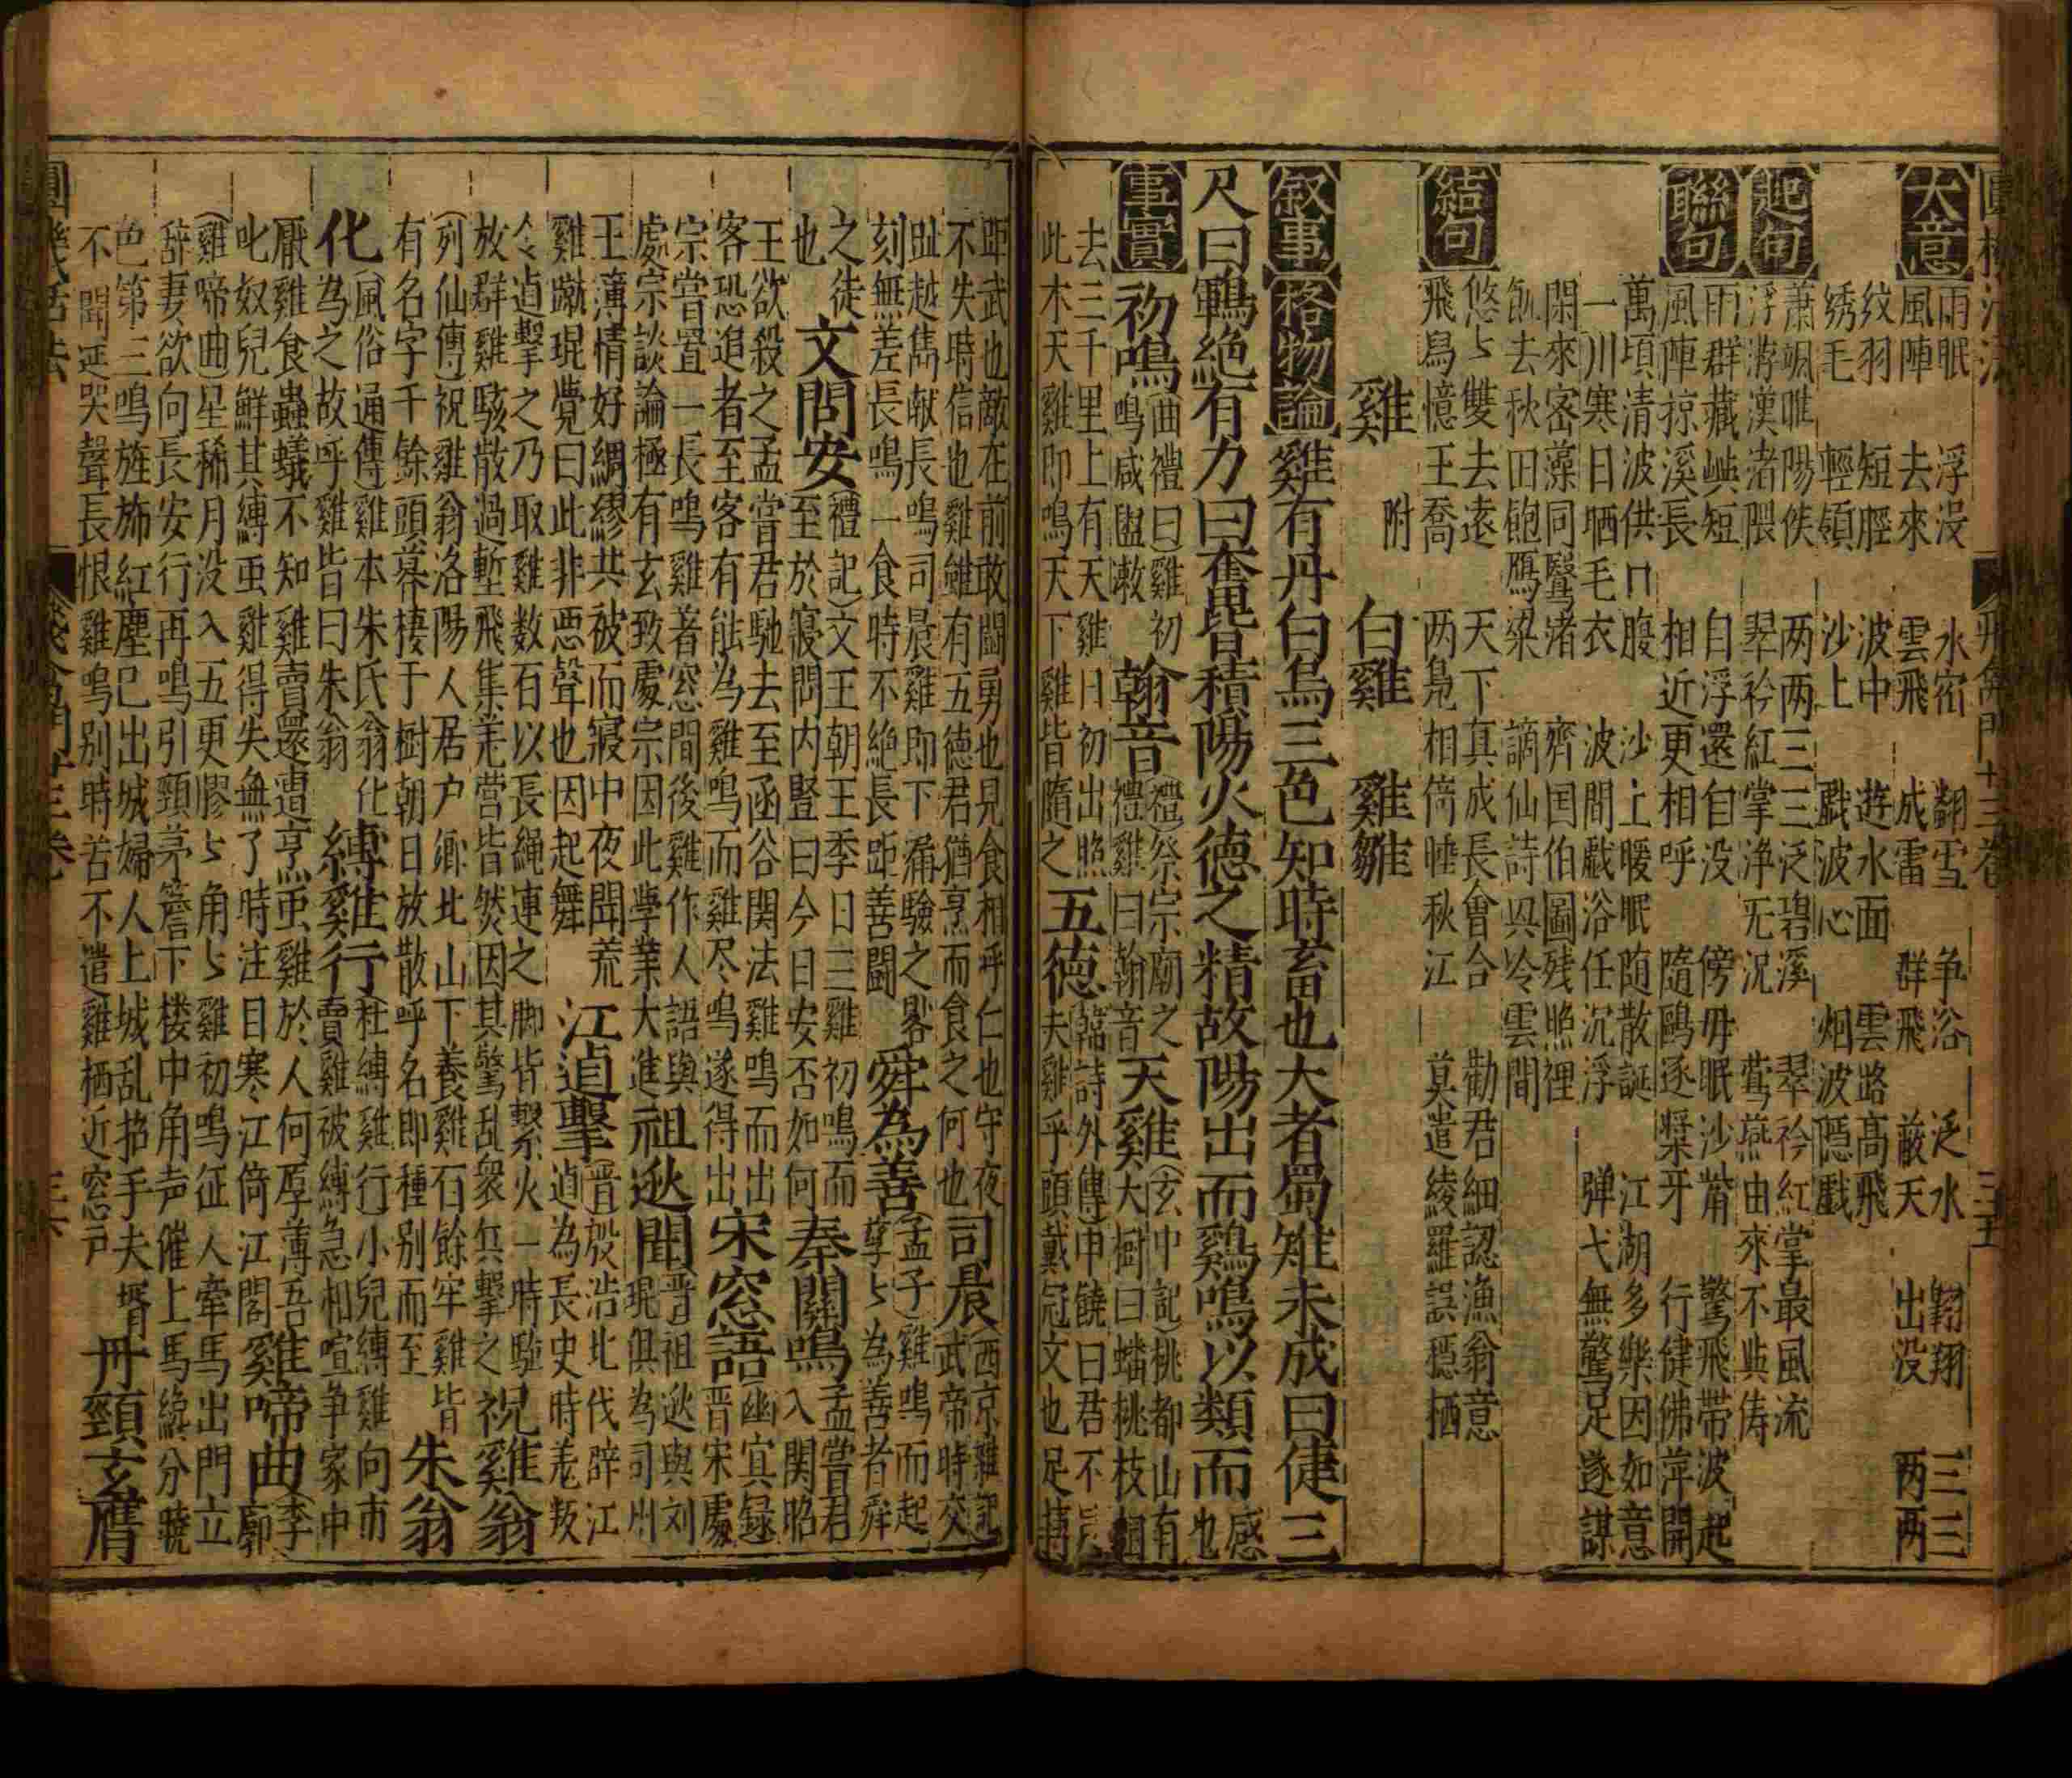 圓機活法 飛禽門十三卷 三五
大意 雨眠 浮没 水宿 翻雪 争浴 泛水 翱翔 三三
風陣 去來 雲飛 成雷 群飛 蔽天 出没 两两
纹羽 短脛 波中 遊水面 雲路高飛
绣毛 輕領 沙上 戲波心 烟波隠戲
起句 蕭颯唯陽侯 两两三三泛碧溪 翠衿紅掌最風流
浮游漢渚隈 翠衿紅掌浄无况 鶯燕由來不與俦
聯句 雨群藏嶼短 自浮還自没 傍毋眠沙觜 驚飛带波起
風陣掠溪長 相近更相呼 隨鷗逐槳牙 行倢佛萍開
萬頃清波供口腹 沙上暖眠随散誕 江湖多樂因如意
一川寒日晒毛衣 波間戲浴任沉浮 弹弋無驚足遂謀
閑來宻藻同鷖渚 齊国伯圖残照裡
飢去秋田飽鴈粱 謫仙詩㒷冷雲間
結句 悠々雙去遠 天下真成長會合 勸君細認漁翁意
飛鳥憶王喬 两凫相倚睡秋江 莫遣綾羅誤穏栖
雞 附 白雞 雞雛
叙事 格物論 雞有丹白烏三色知時畜也大者蜀雉未成曰倢三
尺曰鶤絶有力曰奮皆積陽火德之精故陽出而鷄鳴以類而感也
事實 初鳴 曲禮曰雞初鳴咸盥漱 翰音 禮祭宗廟之禮雞曰翰音 天雞 玄中記桃都山有大樹曰蟠桃枝相
去三千里上有天雞日初出照此木天雞即鳴天下雞皆隨之 五德 韓詩外傳田饒曰君不見夫雞乎頭戴冠文也足摶
距武也敵在前敢鬪勇也見食相呼仁也守夜不失時信也雞雖有五德君猶烹而食之何也 司晨 西京雜記武帝時交
趾越雋献長鳴司晨雞即下漏驗之晷刻無差長鳴一食時不絶長距善鬪 舜為善 孟子雞鳴而起孳々為善者舜
之徒也 文問安 禮記文王朝王季日三雞初鳴而至於寢問内豎曰今日安否如何 秦關鳴 孟嘗君入関昭
王欲殺之孟嘗君馳去至函谷関法雞鳴而出客恐追者至客有能為雞鳴而雞尽鳴遂得出 宋窓語 幽冥録晋宋處
宗嘗置一長鳴雞著窓間後雞作人語與處宗談論極有玄致處宗因此學業大進 祖逖聞 晋祖逖與刘琨俱為司州
主薄情好綢繆共被而寢中夜聞荒雞蹴琨覺曰此非悪聲也因起舞 江逌擊 晋殷浩北伐辟江逌為長史時羌叛
令逌擊之乃取雞数百以長繩連之脚皆繫火一時駈放群雞駭散過塹飛集羌营皆然因其驚乱衆兵擊之 祝雞翁
列仙傳祝雞翁洛陽人居户鄉北山下養雞百餘年雞皆有名字千餘頭暮棲于樹朝日放散呼名即種别而至 朱翁
化 風俗通傳雞本朱氏翁化為之故呼雞皆曰朱翁 縛雞行 杜縛雞行小兒縛雞向市賣雞被縛急相喧争家中
厭雞食蟲蟻不知雞賣還遭烹虫雞於人何厚薄吾叱奴兒觧其縛虫雞得失無了時注目寒江倚江閣 雞啼曲 李廓
雞啼曲星稀月没入五更膠々角々雞初鳴征人牽馬出門立辞妻欲向長安行再鳴引頸茅簷下楼中角声催上馬纔分曉
色第三鳴旌斾紅塵已出城婦人上城乱招手夫壻不聞遥哭聲長恨雞鳴别時苦不遣雞栖近窓戸 丹頸玄膺
圓機活法 飛禽門十三卷 三六